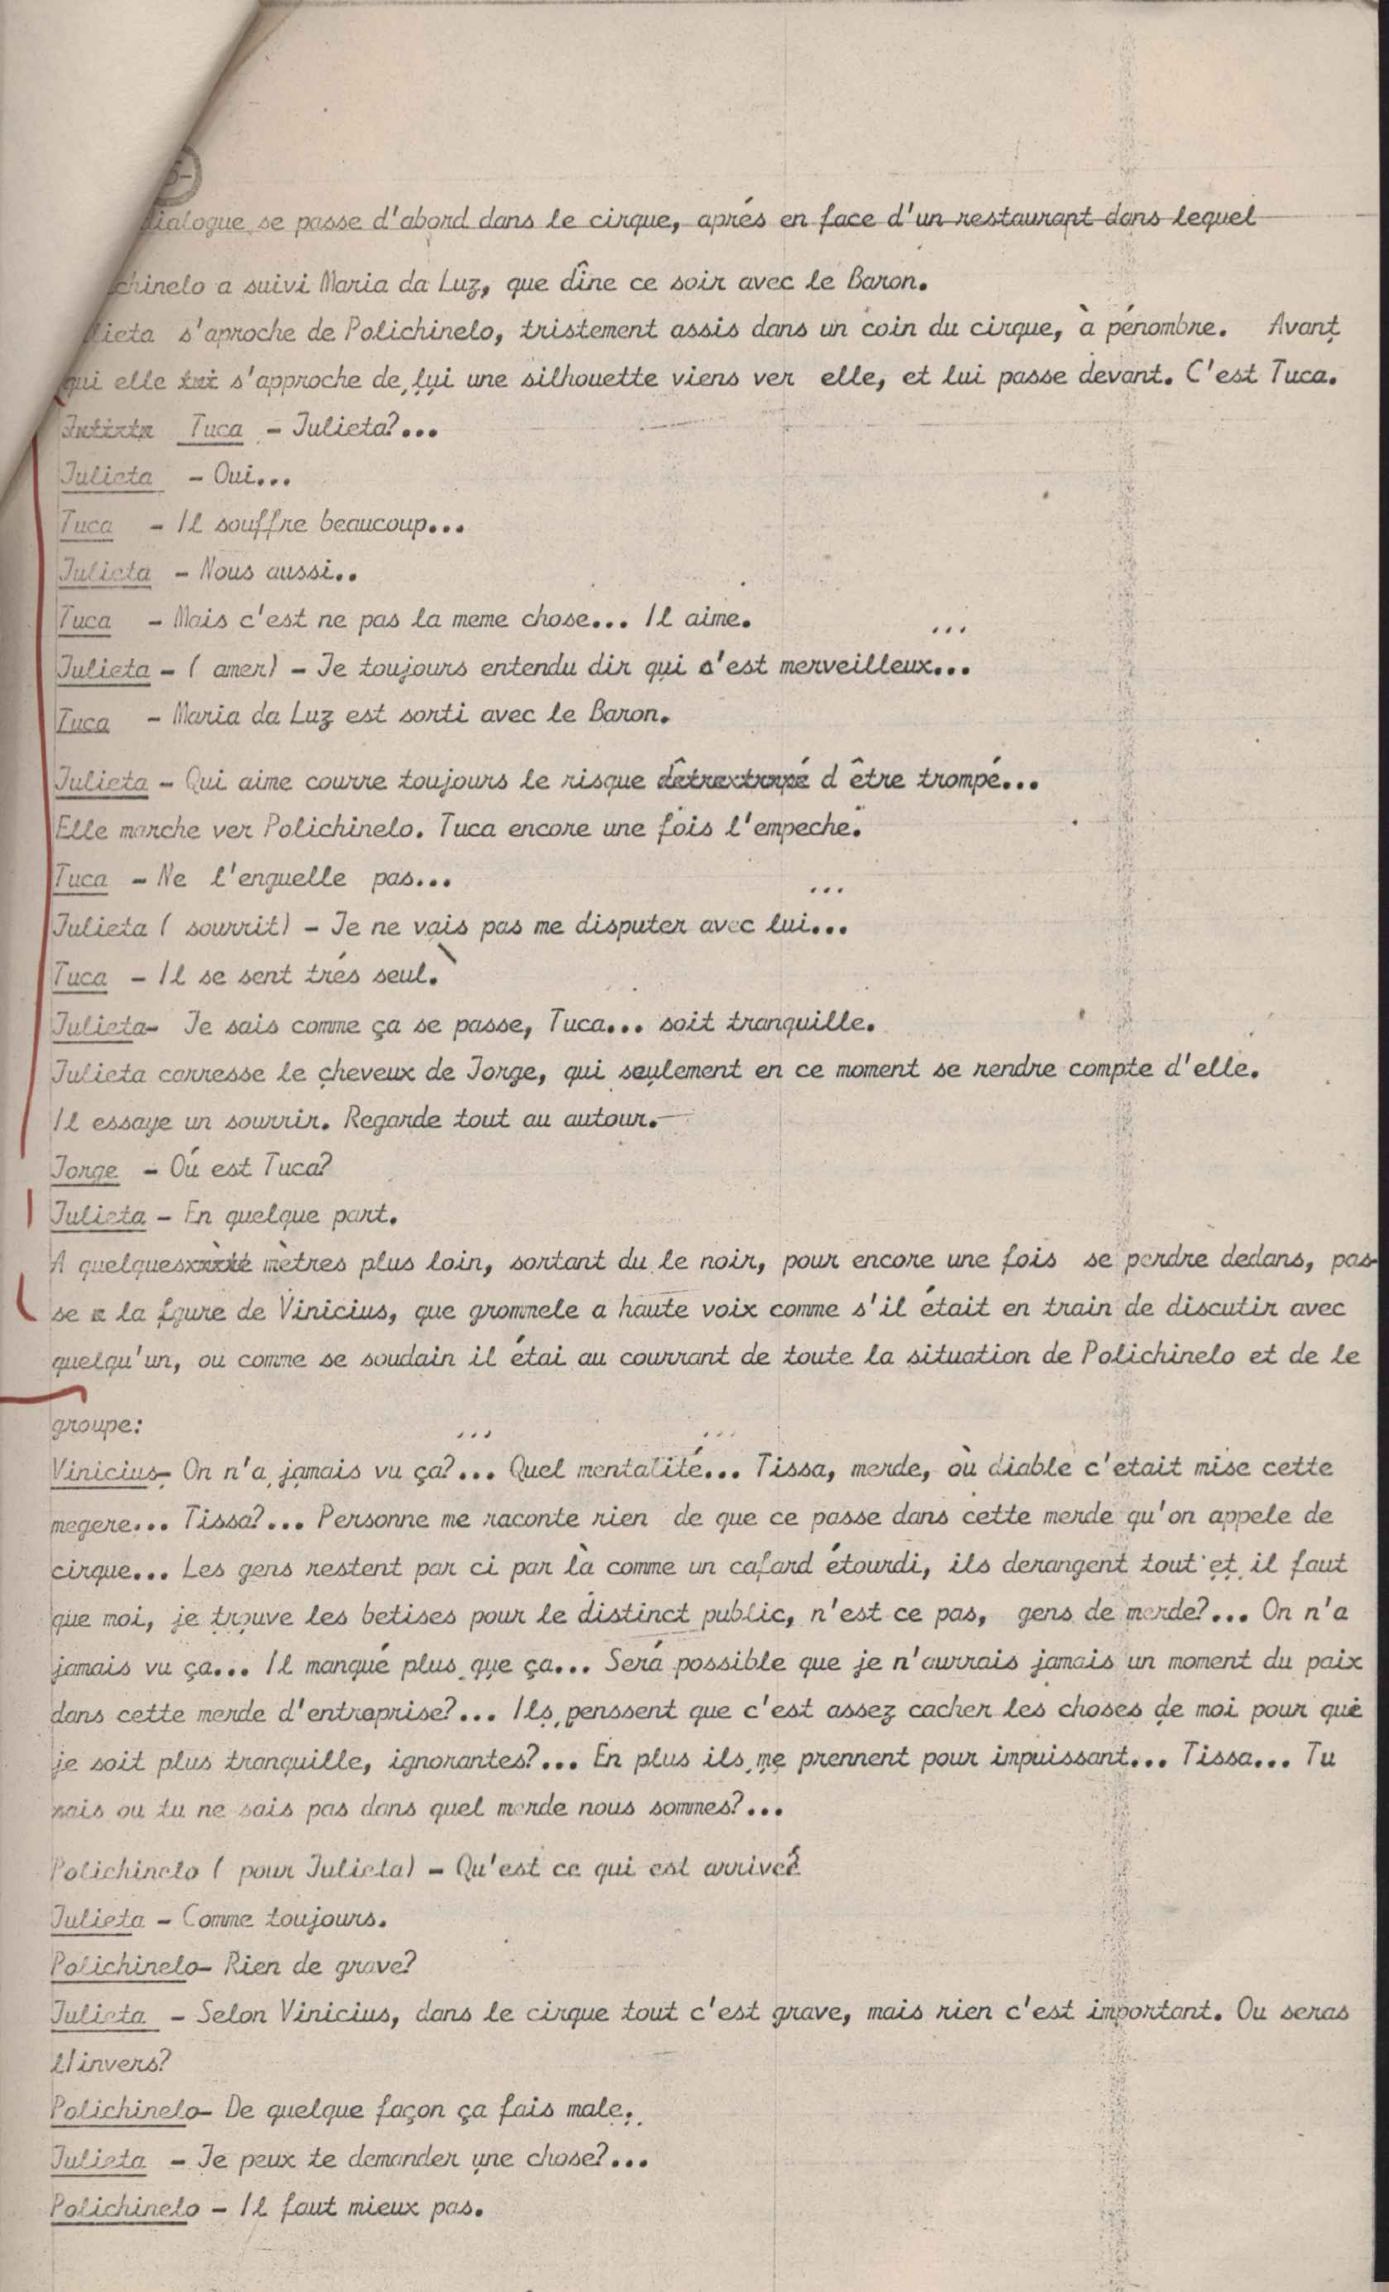 ialogue se passe d'abord dans le cirque, aprés en face d'un restaurant dans lequel
chinelo a suivi Maria da Luz, que dîne ce soir avec le Baron.
lieta s'aproche de Polichinelo, tristement assis dans un coin du cirque, à pénombre. Avant
qui elle lui s'approche de lui une silhouette viens ver elle, et lui passe devant. C'est Tuca.
Julieta Tuca - Julieta?...
Julieta - Oui...
Tuca - Il souffre beaucoup...
Julieta - Nous aussi..
Tuca - Mais c'est ne pas la meme chose... Il aime.
Julieta - ( amer) - Je toujours entendu dir qui c'est merveilleux...
Tuca - Maria da Luz est sorti avec le Baron.
Julieta - Qui aime courre toujours le risque d être trompé...
Elle marche ver Polichinelo. Tuca encore une fois l'empeche.
Tuca - Ne l'enguelle pas...
Julieta ( sourrit) - Je ne vais pas me disputer avec lui...
Tuca - Il se sent trés seul.
Julieta- Je sais comme ça se passe, Tuca... soit tranquille.
Julieta carresse le cheveux de Jorge, qui seulement en ce moment se rendre compte d'elle.
Il essaye un sourrir. Regarde tout au autour.
Jorge - Oú est Tuca?
Julieta - En quelque part.
A quelques mètres plus loin, sortant du le noir, pour encore une fois se perdre dedans, pas-
se a la fgure de Vinicius, que grommele a haute voix comme s'il était en train de discutir avec
quelqu'un, ou comme se soudain il étai au courrant de toute la situation de Polichinelo et de le
groupe:
Vinicius- On n'a jamais vu ça?... Quel mentalité... Tissa, merde, où diable c'etait mise cette
megere... Tissa?... Personne me raconte rien de que ce passe dans cette merde qu'on appele de
cirque... Les gens restent par ci par là comme un cafard étourdi, ils derangent tout et il faut
que moi, je trouve les betises pour le distinct public, n'est ce pas, gens de merde?... On n'a
jamais vu ça... Il manqué plus que ça... Será possible que je n'aurrais jamais un moment du paix
dans cette merde d'entreprise?... Ils penssent que c'est assez cacher les choses de moi pour que
je soit plus tranquille, ignorantes?... En plus ils me prennent pour impuissant... Tissa... Tu
sais ou tu ne sais pas dans quel merde nous sommes?...
Polichinelo ( pour Julieta) - Qu'est ce qui est arriveé
Julieta - Comme toujours.
Polichinelo- Rien de grave?
Julieta - Selon Vinicius, dans le cirque tout c'est grave, mais rien c'est important. Ou seras
l'invers?
Polichinelo- De quelque façon ça fais male.
Julieta - Je peux te demander une chose?...
Polichinelo - Il faut mieux pas.